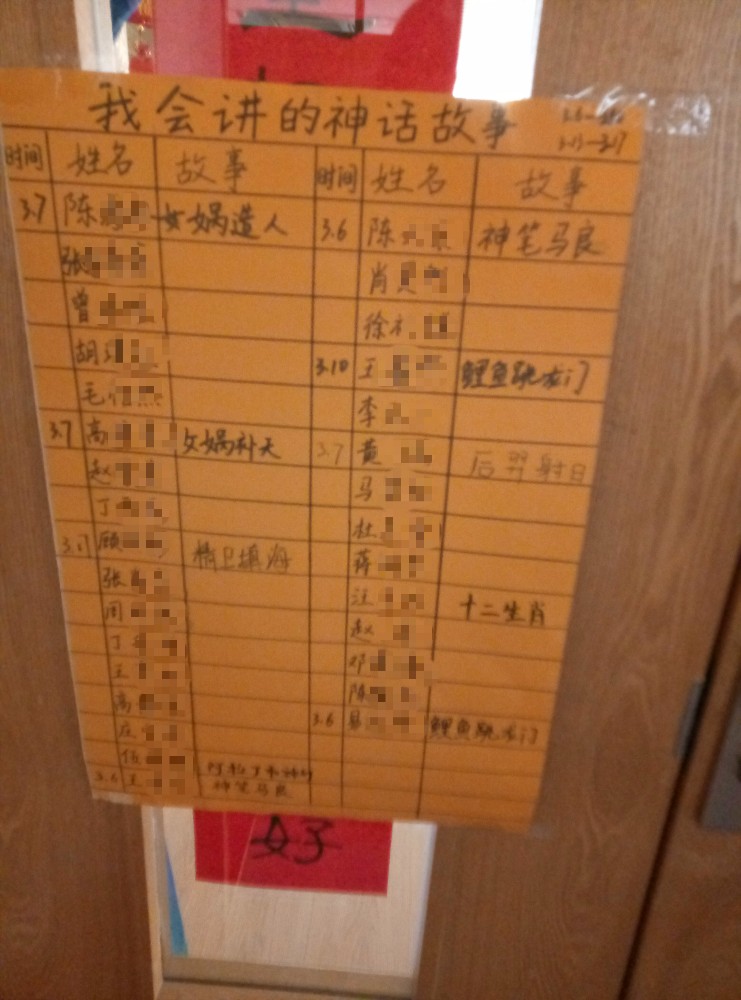 我会讲的神话故事
3.13-3.17
时间 姓名 故事 时间 姓名 故事
3.7 陈 女娲造人 3.6 陈 神笔马良
张 肖
曾 徐
胡 3.10 王 鲤鱼跳龙门
毛 李
3.7 高 女娲补天 3.7 黄 后羿射日
赵 马
丁 杜
3.17 顾 精卫填海 蒋
张 汪 十二生肖
周 赵
丁 邓
王 陈
高 3.6 易 鲤鱼跳龙门
庄
伍
3.6 王 神笔马良
好